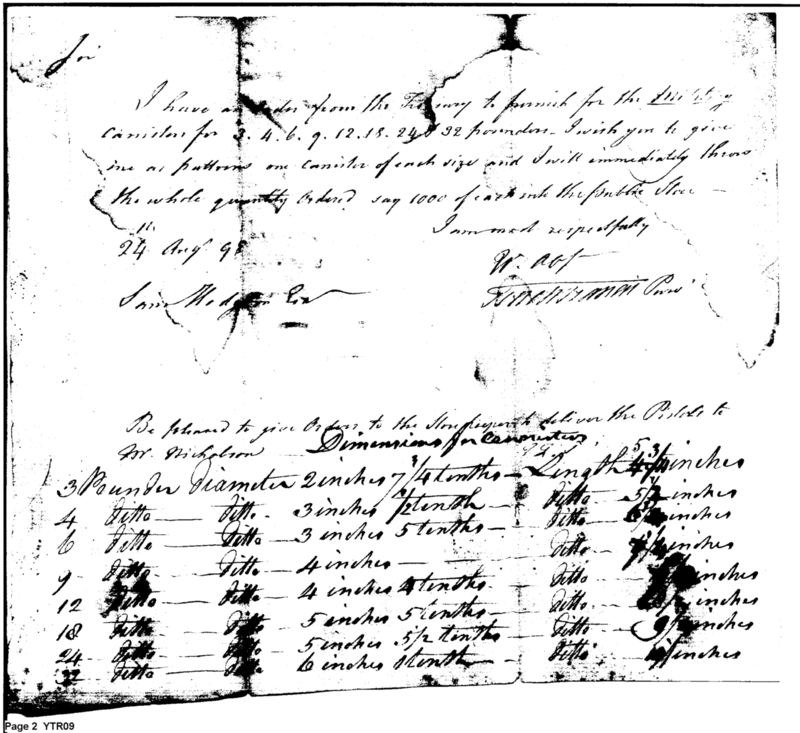 Sir
I have an order from the Treasury to furnish for the Military
canisters for 3. 4. 6. 9. 12. 18. 24 & 32 pounders - I wish you to give
me as patterns one canister of each size and I will immediately throw
the whole quantity ordered say 1000 of each into the public Store -
I am most respectfully
24th Augt 98
Yr. obt
Saml Hodgdon Esqr
Francis Purvr
Be pleased to give Orders to the Storekeeper to deliver the Pistols to
Mr. Nicholson
Dimensions for Cannisters
3 Pounder Diameter 2 inches 7 3/4 tenths - Length inches
4 ditto - ditto - 3 inches 1/2 tenth - ditto 5 inches
6 ditto - ditto 3 inches 5 tenths - ditto inches
9 ditto - ditto 4 inches - ditto inches
12 ditto - ditto 4 inches 4 tenths - ditto inches
18 ditto - ditto 5 inches 5 tenths - ditto inches
24 ditto - ditto 5 inches 5 1/2 tenths ditto 9 inches
32 ditto - ditto 6 inches 1 tenth - ditto inches
Page 2 YTR09